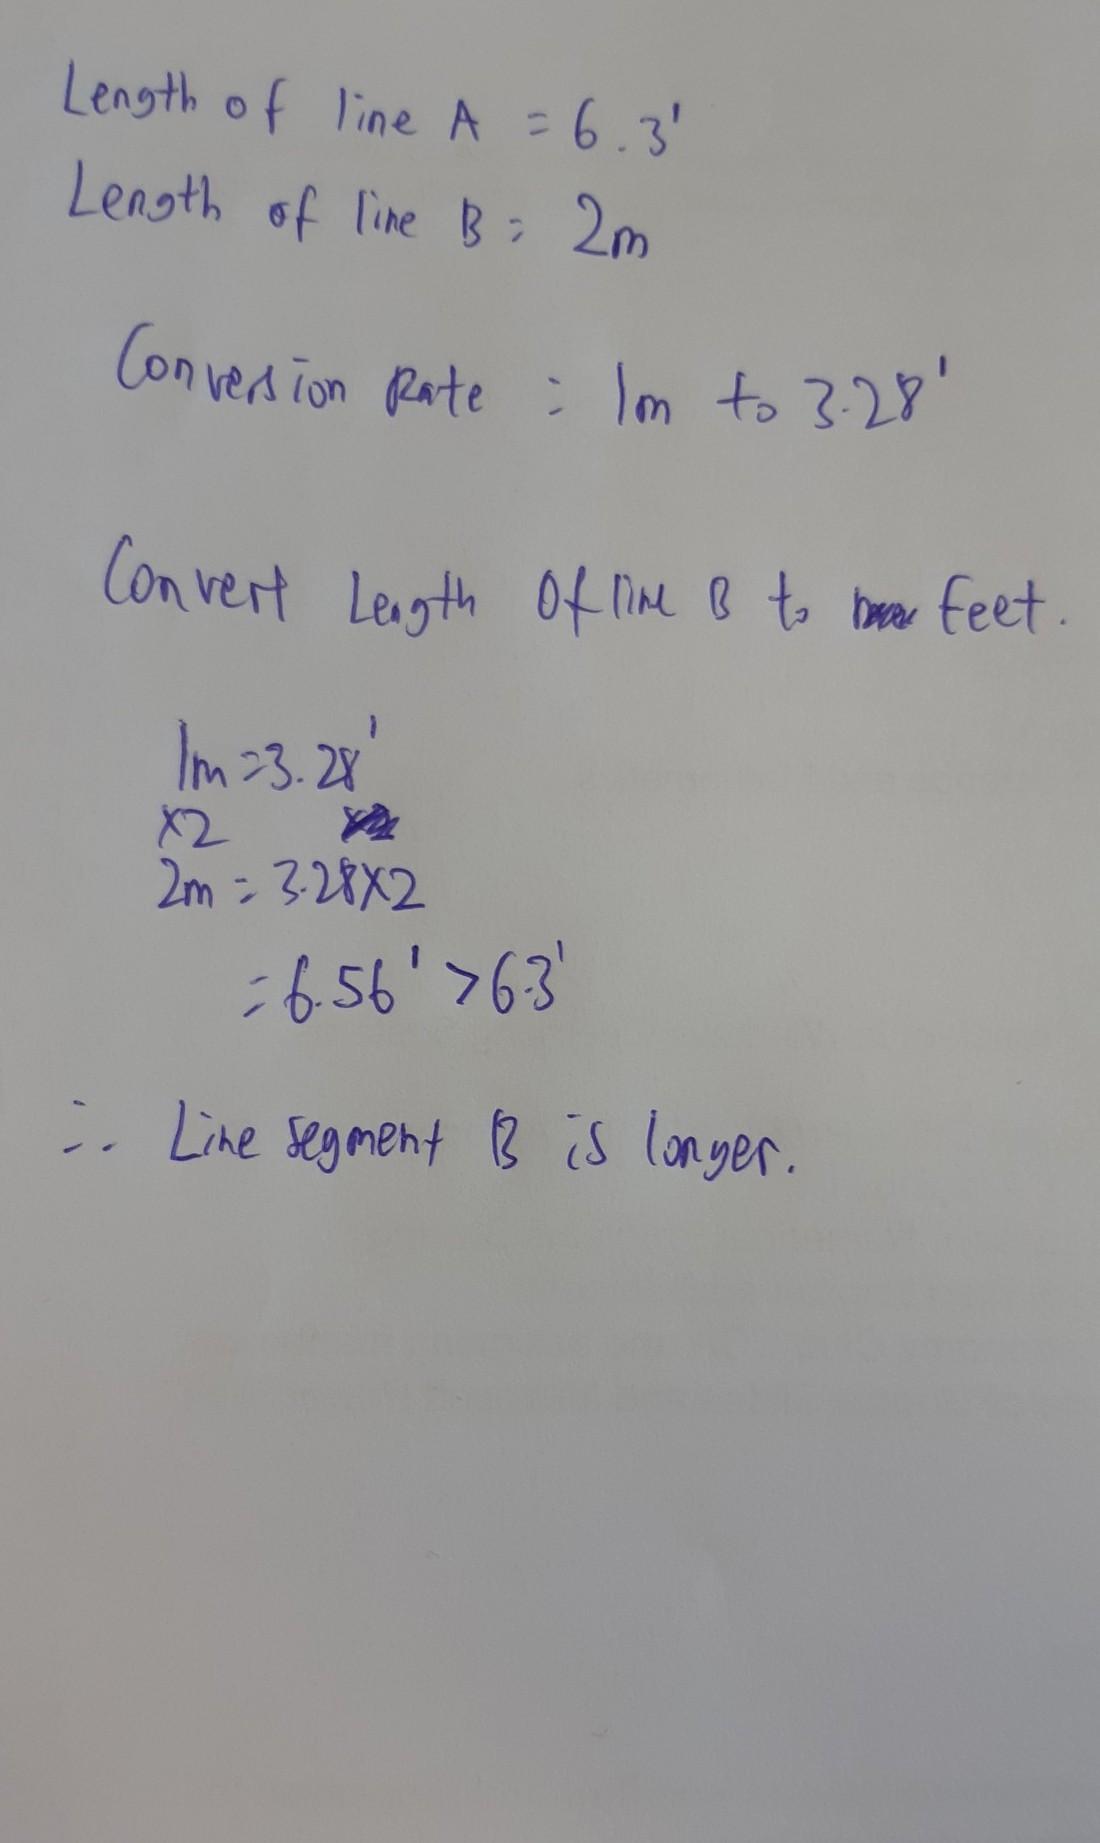 Length of line A = 6.3'
Length of line B = 2m
Conversion Rate = 1m to 3.28'
Convert Length Of line B to feet.
1m=3.28'
x2
2m = 3.28x2
= 6.56' > 6.3'
∴ Line segment B is longer.